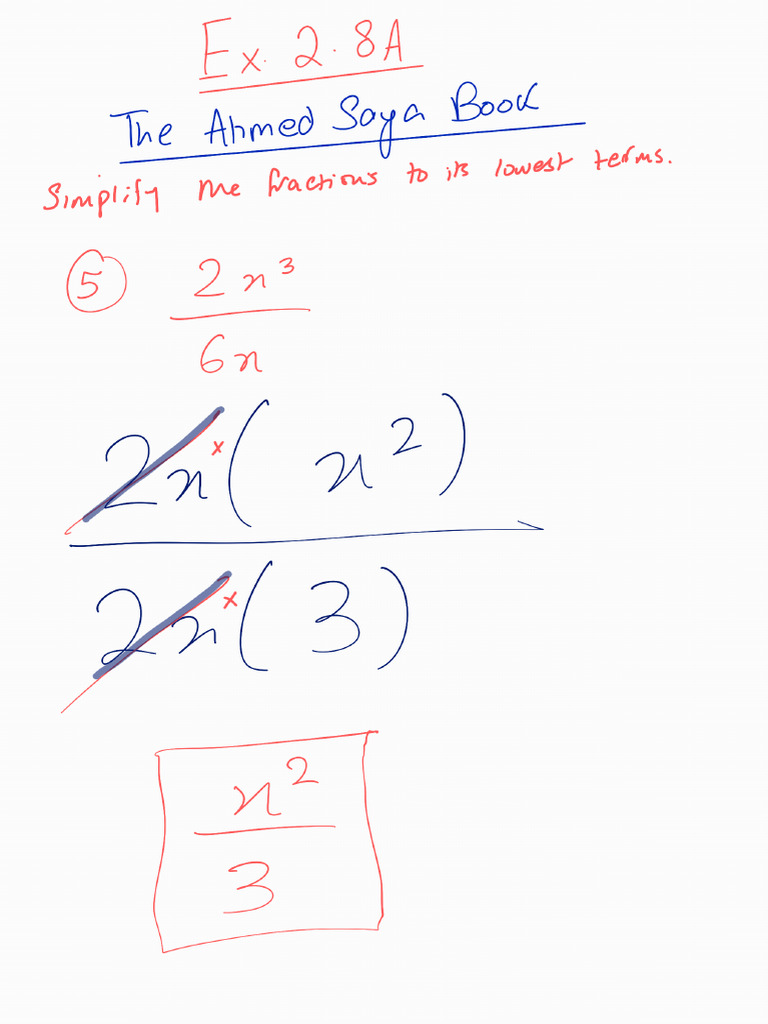 Ex. 2.8A
The Ahmed Saya Book
Simplify the fractions to its lowest terms.
5 2x³
6x
2x × ( x² )
2x × ( 3 )
x²
3